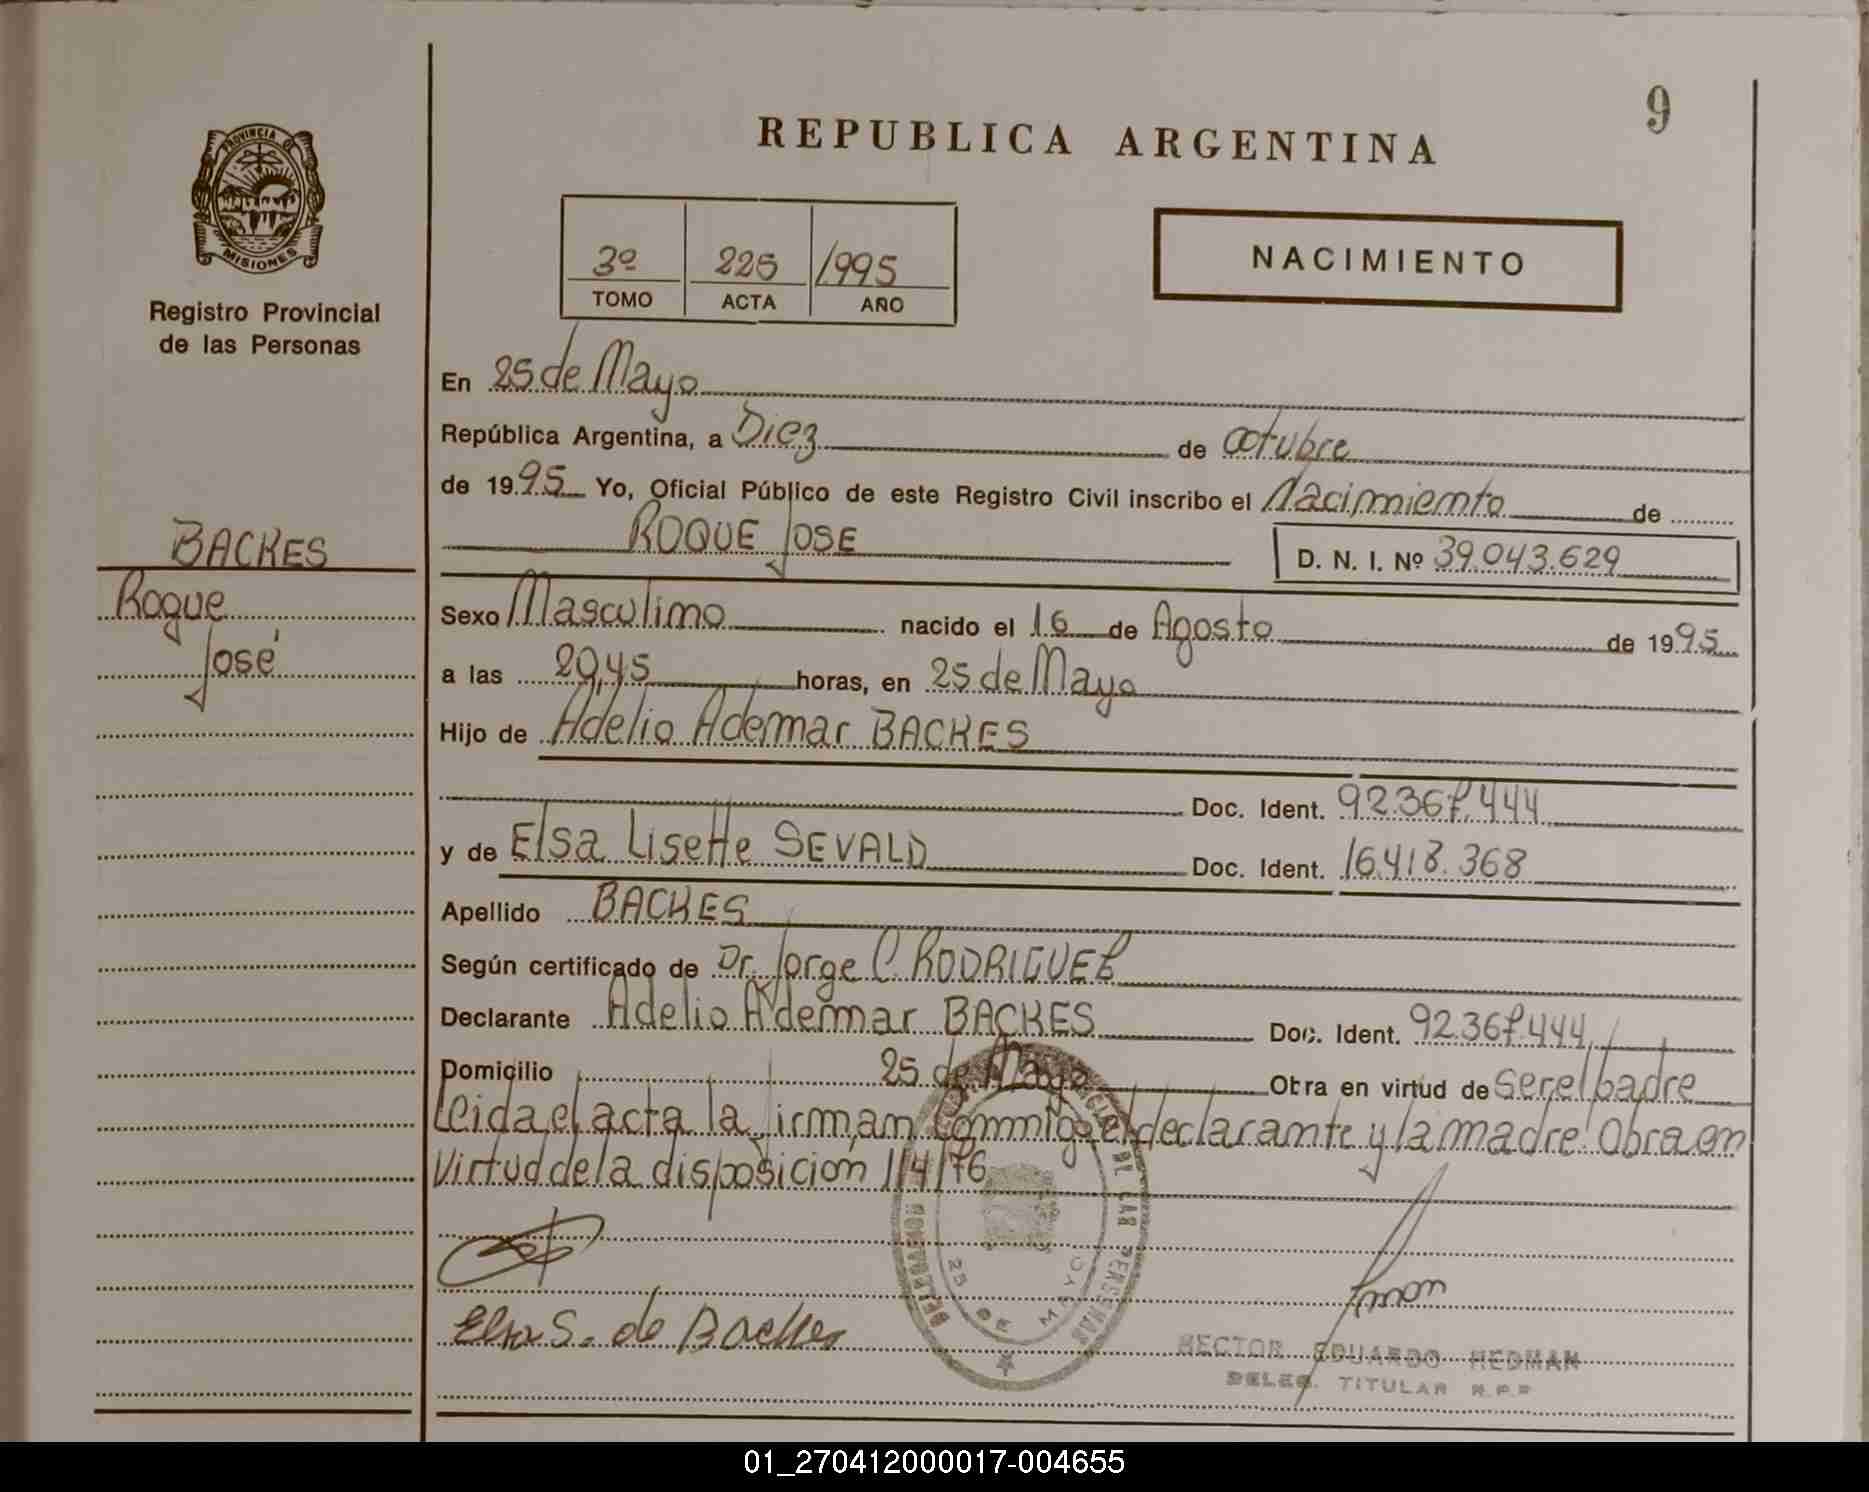 9
REPUBLICA ARGENTINA
PROVINCIA D
MISIONES
Registro Provincial
de las Personas
3º 225 1995
TOMO ACTA AÑO
NACIMIENTO
En 25 de Mayo
República Argentina, a Diez de octubre
de 1995 Yo, Oficial Público de este Registro Civil inscribo el Nacimiento de
ROQUE JOSE
D. N. I. Nº 39.043.629
BACKES
Roque
José
Sexo Masculino nacido el 16 de Agosto de 1995
a las 20,45 horas, en 25 de Mayo
Hijo de Adelio Ademar BACKES
Doc. Ident. 92.367.444
y de Elsa Lisette SEVALD Doc. Ident. 16.418.368
Apellido BACKES
Según certificado de Dr. Jorge C. RODRIGUEZ
Declarante Adelio Ademar BACKES Doc. Ident. 92.367.444
Domicilio 25 de Mayo Obra en virtud de ser el padre
Leida el acta la firman conmigo el declarante y la madre. Obra en
virtud de la disposición 1/4/76
DELEGACION DE LAS PERSONAS
25 DE MAYO
Elsa S. de Backes
HECTOR EDUARDO HEDMAN
DELEG. TITULAR R.P.P
01_270412000017-004655